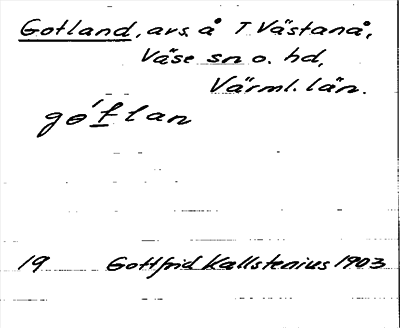 Gotland, avs. å T. Västanå,
Väse sn o. hd,
Värml. län.
go´tlan
19 Gottfrid Kallstenius 1903